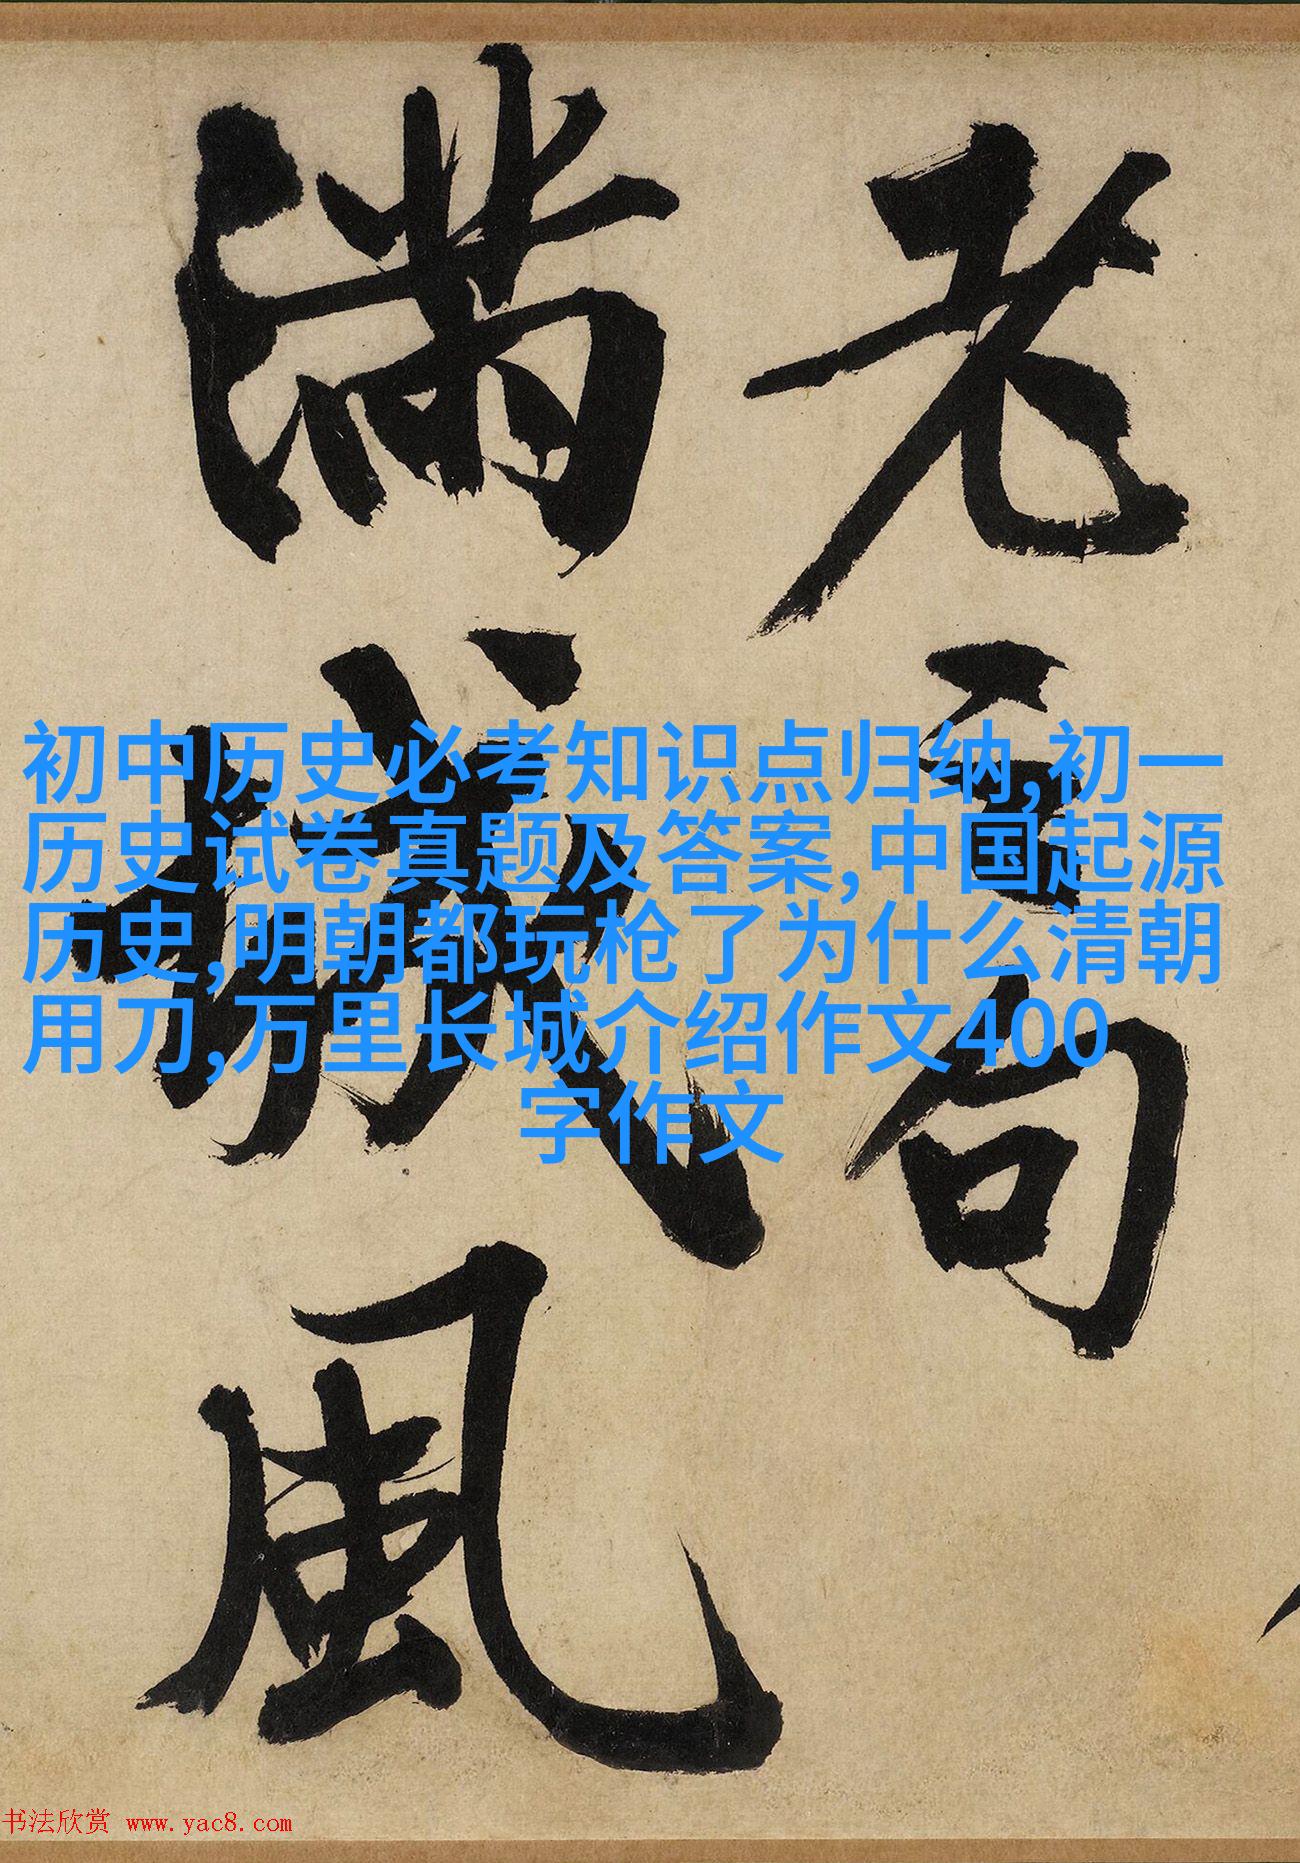 老三句
滿城風
初中历史必考知识点归纳,初一
历史试卷真题及答案,中国起源
历史,明朝都玩枪了为什么清朝
用刀,万里长城介绍作文400
字作文
书法欣赏 www.yac8.com